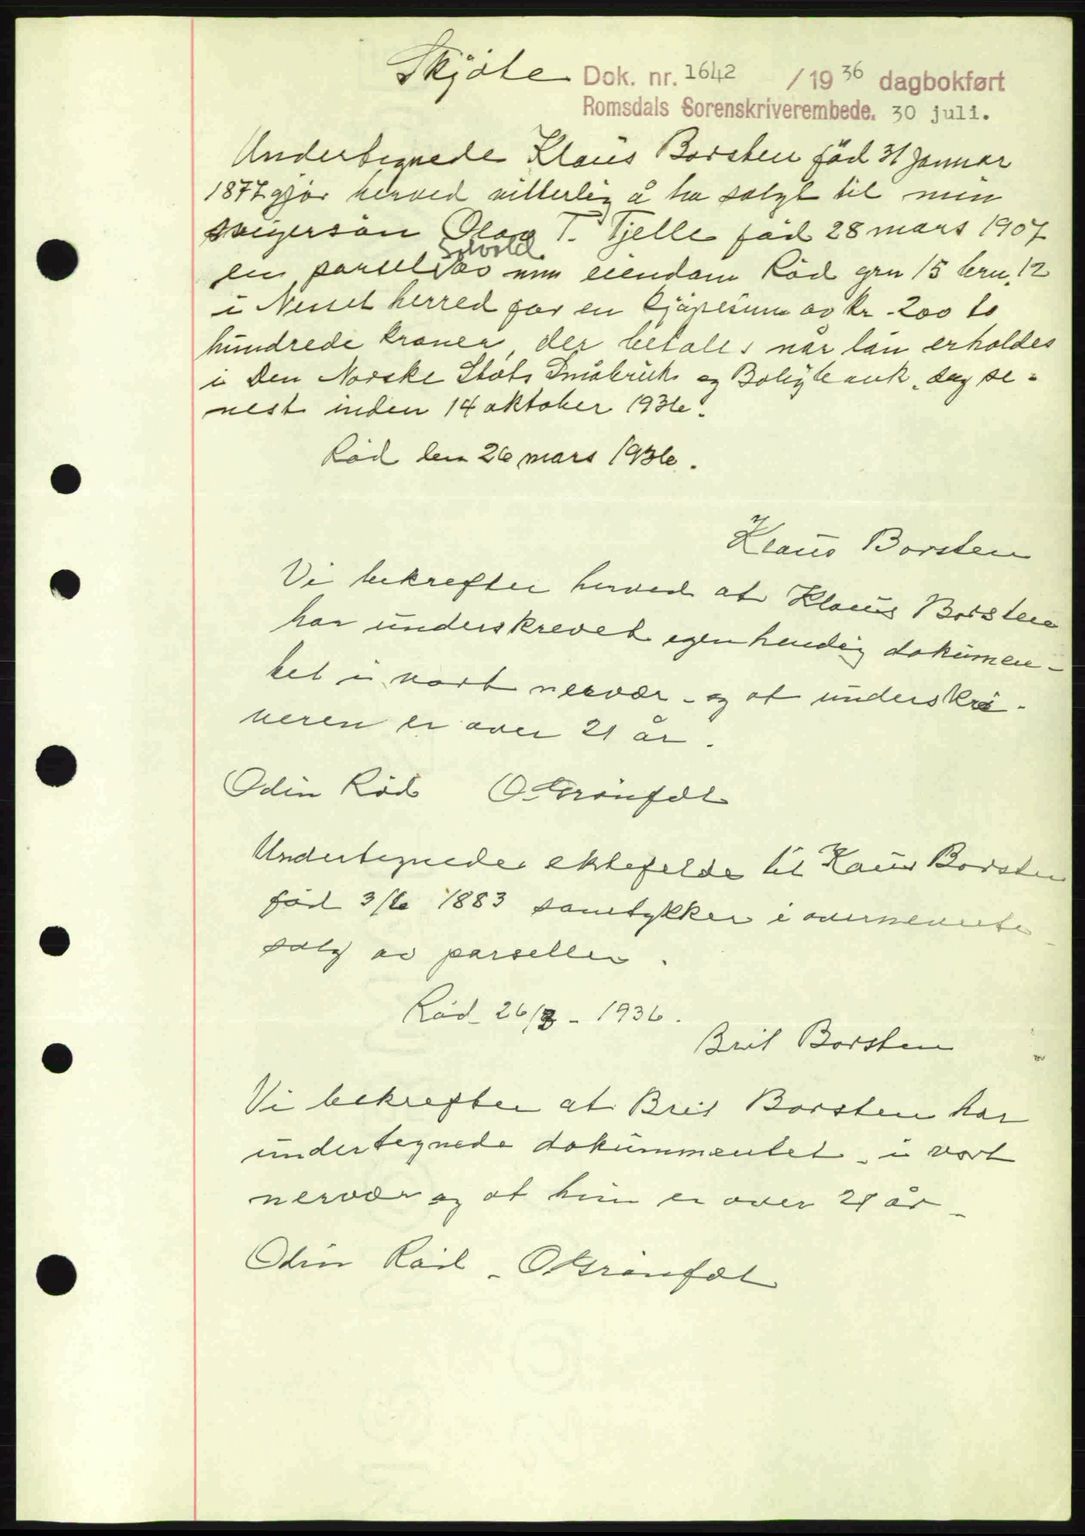 Skjøte Dok. nr. 1642 / 19 36 dagbokført
Romsdals Sorenskriverembede. 30 juli.
Undertegnede Klaus Borsten född 31 Januar
1877 gjör herved vitterlig å ha solgt til min
svigersön Olav T. Tjelle född 28 mars 1907
Solvold
en parsel av min eiendom Röd grn 15 brn. 12
i Nesset herred for en kjøpesum av kr. 200 to
hundrede kroner, der betales når lån erholdes
i Den Norske Stats Småbruk og Boligbank, dog se-
nest inden 14 oktober 1936.
Röd den 26 mars 1936.
Klaus Borsten
Vi bekrefter herved at Klaus Borsten
har underskrevet egenhendig dokumen-
tet i vort nervær - og at underskri-
veren er over 21 år.
Odin Röd O. Grönfdt
Undertegnede ektefelde til Klaus Borsten
född 3/6 1883 samtykker i overnevnte
salg av parsellen.
Röd - 26/3 - 1936.
Brit Borsten
Vi bekrefter at Brit Borsten har
undertegnede dokummentet - i vort
nervær og at hun er over 21 år -
Odin Röd - O Grönfdt